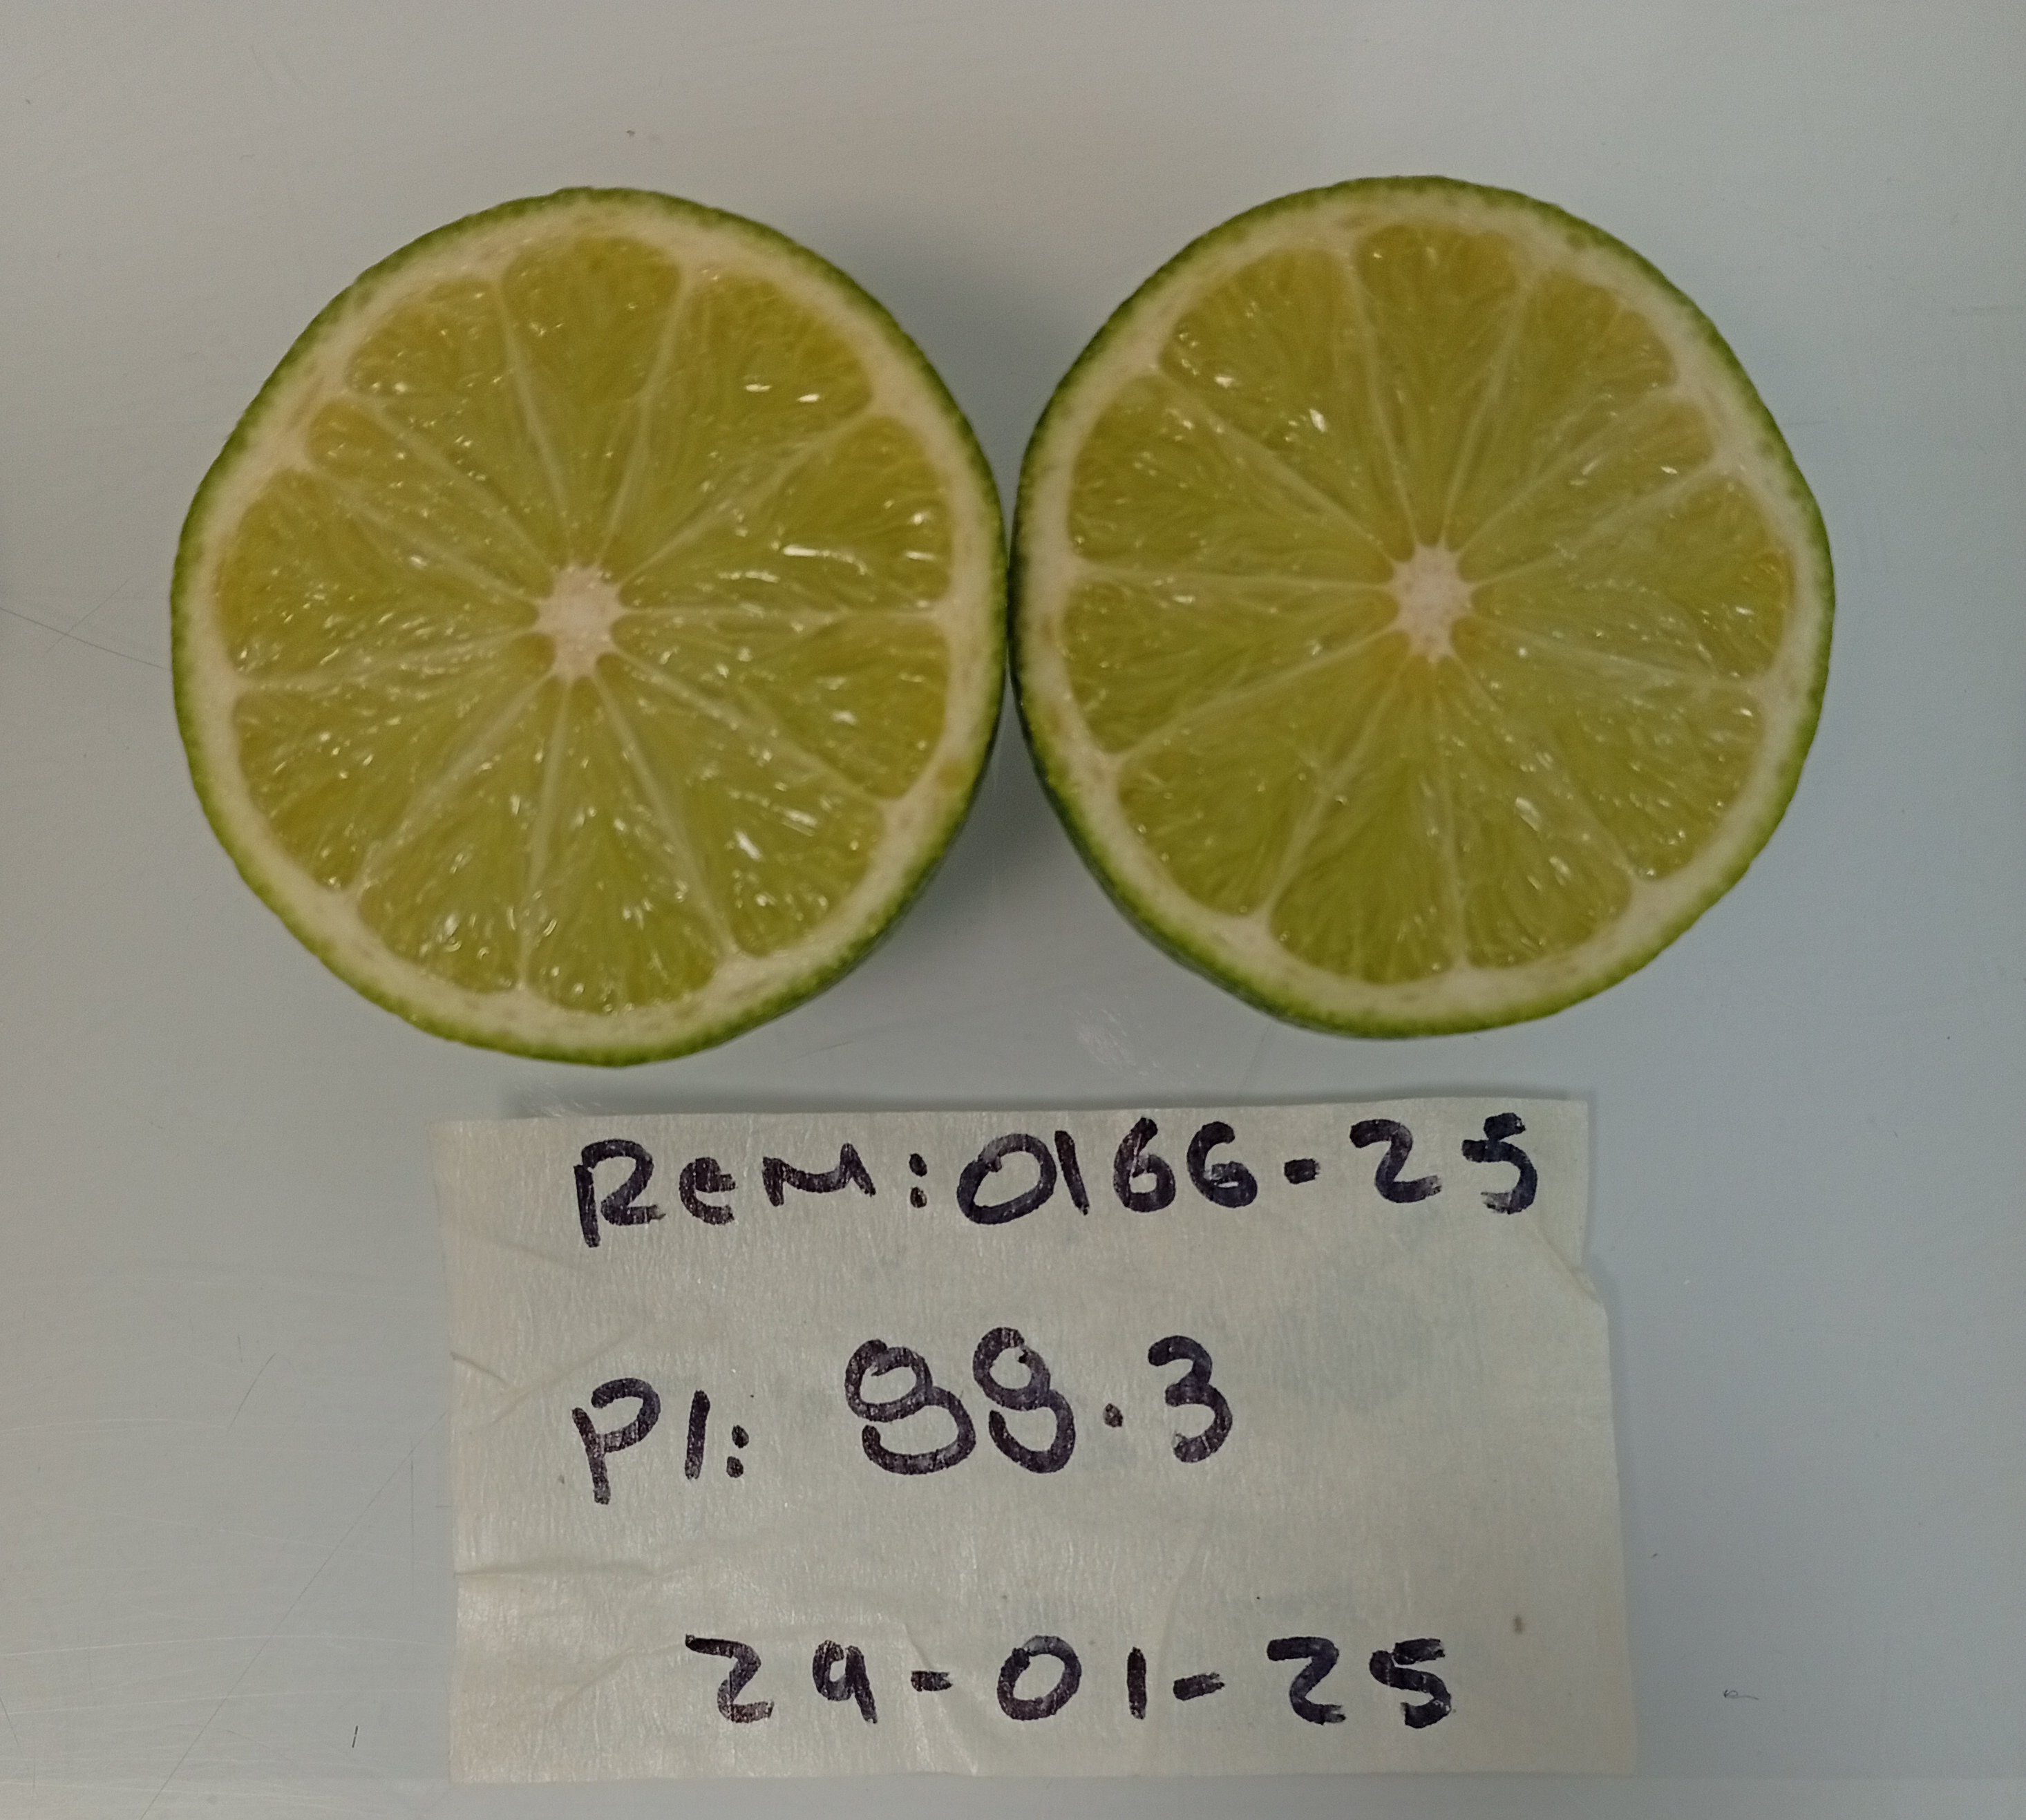 REM: 0166-25
PI: 99.3
29-01-25